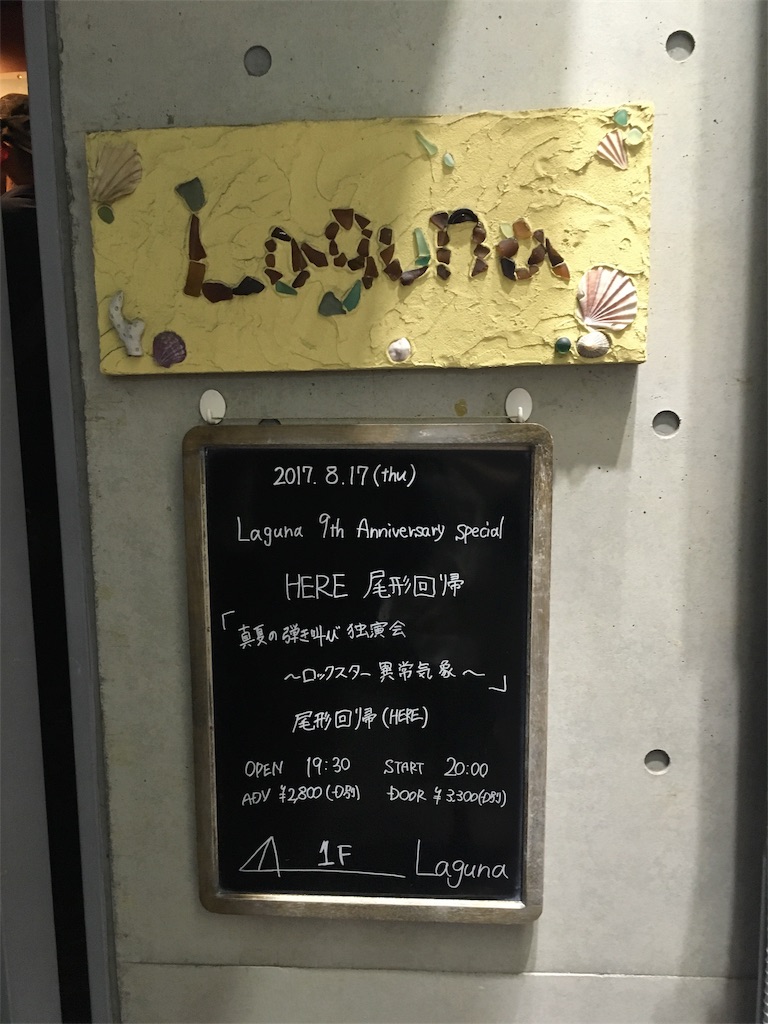 Laguna
2017. 8.17 (thu)
Laguna 9th Anniversary special
HERE 尾形回帰
「真夏の弾き叫び 独演会
～ロックスター 異常気象～」
尾形回帰 (HERE)
OPEN 19:30 START 20:00
ADV ¥2,800 (-D別) DOOR ¥3,300 (-D別)
1F Laguna